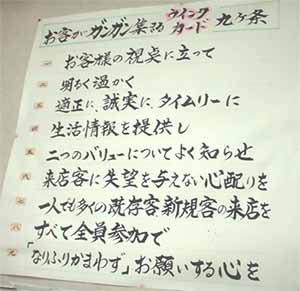 お客がガンガン集まる ウインクカード 九ヶ条
一 お客様の視点に立って
二 明るく温かく
三 適正に、誠実に、タイムリーに
四 生活情報を提供し
五 二つのバリューについてよく知らせ
六 来店客に失望を与えない心配りを
七 一人でも多くの既存客新規客の来店を
八 すべて全員参加で
九 「なりふりかまわず」お願いする心を